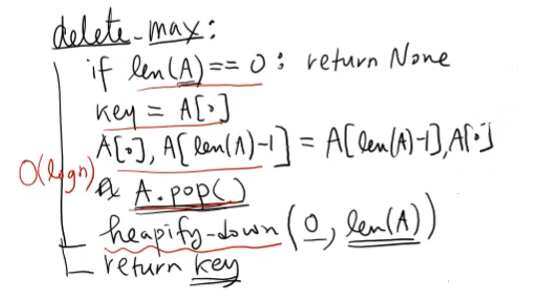 delete-max:
if len(A) == 0 : return None
key = A[0]
A[0], A[len(A)-1] = A[len(A)-1], A[0]
O(logn)
A.pop()
heapify-down (0, len(A))
return key